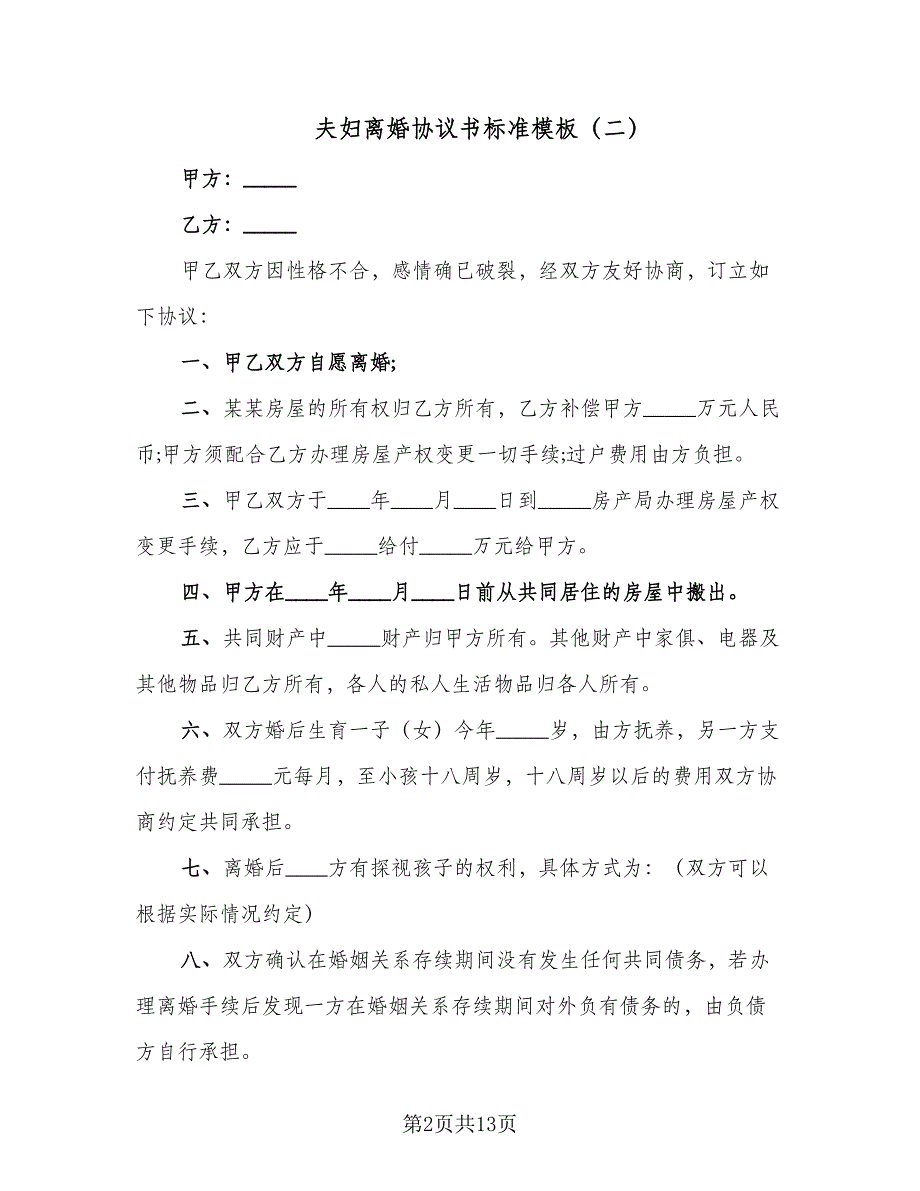 夫妇离婚协议书标准模板（二）
甲方：_____
乙方：_____
甲乙双方因性格不合，感情确已破裂，经双方友好协商，订立如
下协议：
一、甲乙双方自愿离婚;
二、某某房屋的所有权归乙方所有，乙方补偿甲方_____万元人民
币;甲方须配合乙方办理房屋产权变更一切手续;过户费用由方负担。
三、甲乙双方于____年____月____日到_____房产局办理房屋产权
变更手续，乙方应于_____给付_____万元给甲方。
四、甲方在____年____月____日前从共同居住的房屋中搬出。
五、共同财产中_____财产归甲方所有。其他财产中家俱、电器及
其他物品归乙方所有，各人的私人生活物品归各人所有。
六、双方婚后生育一子（女）今年_____岁，由方抚养，另一方支
付抚养费_____元每月，至小孩十八周岁，十八周岁以后的费用双方协
商约定共同承担。
七、离婚后____方有探视孩子的权利，具体方式为：（双方可以
根据实际情况约定）
八、双方确认在婚姻关系存续期间没有发生任何共同债务，若办
理离婚手续后发现一方在婚姻关系存续期间对外负有债务的，由负债
方自行承担。
第2页共13页